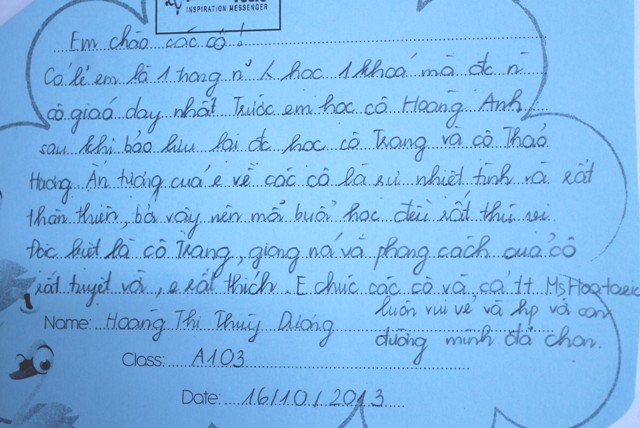 INSPIRATION MESSENGER
Em chào các cô !
Có lẽ em là 1 trong n~ h học 1 khoá mà đc n~
cô giáo dạy nhất. Trước em học cô Hoàng Anh,
sau khi bảo lưu lại đc học cô Trang và cô Thảo
Hương. Ấn tượng của e về các cô là sự nhiệt tình và rất
thân thiện, bởi vậy nên mỗi buổi học đều rất thú vị.
Đặc biệt là cô Trang, giọng nói và phong cách của cô
rất tuyệt vời, e rất thích. E chúc các cô và cả tt Ms Hoa toeic
luôn vui vẻ và hp với con
đường mình đã chọn.
Name: Hoàng Thị Thuỳ Dương
Class: A103
Date: 16/10/2013